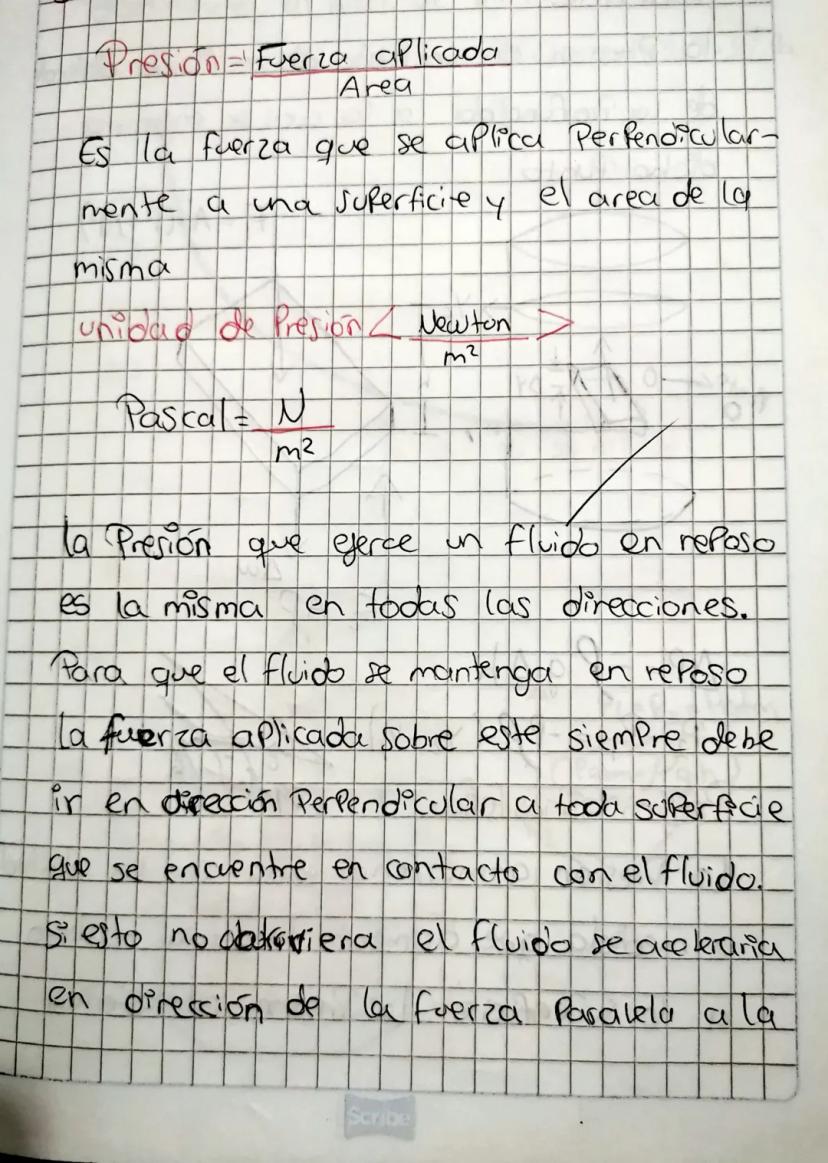 Presión = Fuerza aplicada
Area
Es la fuerza que se aplica Perpendicular-
mente a una superficie y el area de la
misma
unidad de Presión < Newton >
m²
Pascal = N
m²
la Presión que ejerce un fluido en reposo
es la misma en todas las direcciones.
Para que el fluido se mantenga en reposo
la fuerza aplicada sobre este siempre debe
ir en dirección Perpendicular a toda superficie
que se encuentre en contacto con el fluido.
si esto no el fluido se aceleraria
en dirección de la fuerza Paralela a la
Scribe